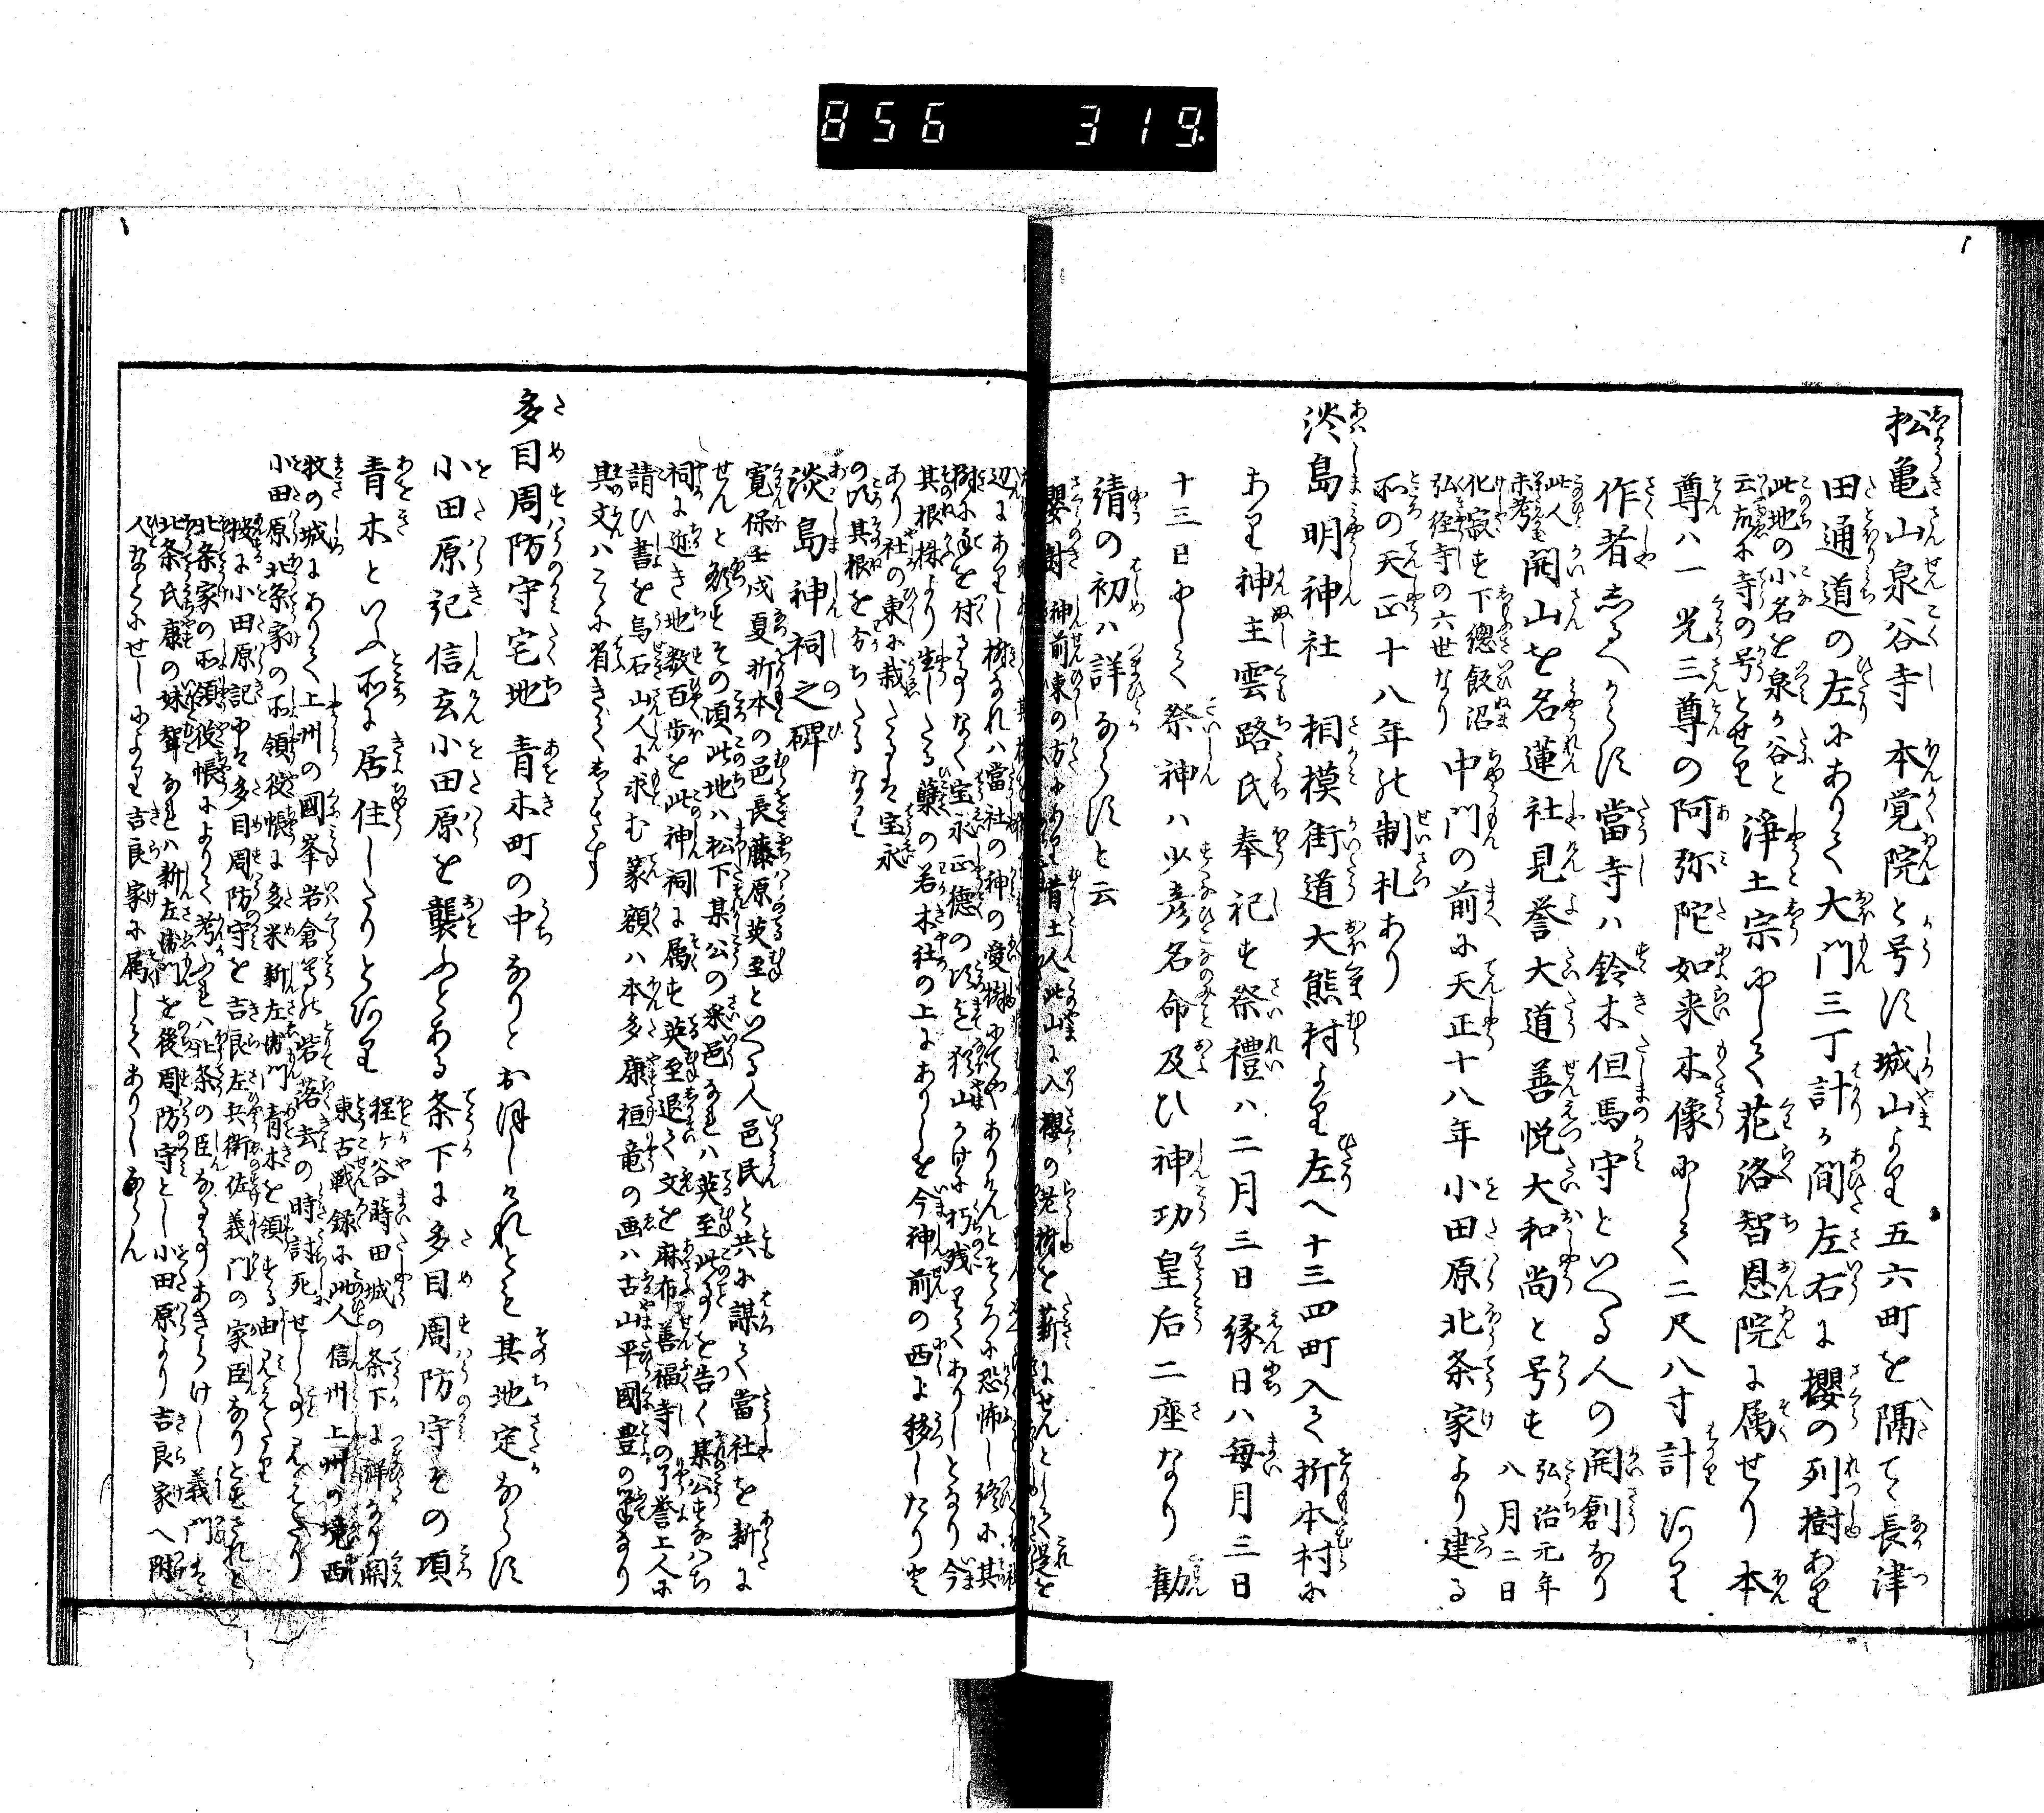 856 319
松亀山泉谷寺 本覚院と号す城山より五六町を隔て長津
田通道の左にありて大門三丁計か間左右に櫻の列樹あり
此地の小名を泉が谷と
云故に寺の号とせり
浄土宗にして花洛智恩院に属せり本
尊ハ一光三尊の阿弥陀如来木像にして二尺八寸計あり
作者しるへからす當寺ハ鈴木但馬守といへる人の開創なり
此人
未考
開山を名蓮社見誉大道善悦大和尚と号す
弘治元年
八月二日
化寂す下總飯沼
弘経寺の六世なり
中門の前に天正十八年小田原北条家より建る
所の天正十八年の制札あり
淡島明神社 相模街道大熊村より左へ十三四町入て折本村に
あり神主雲路氏奉祀す祭禮ハ二月三日縁日ハ毎月三日
十三日にして祭神ハ少彦名命及ひ神功皇后二座なり勧
請の初ハ詳ならすと云
櫻樹 神前東の方にあり昔土人此山に入櫻の老樹を薪にせんとして是を
其根株より生したる蘖の若木社の上にありしを今神前の西に移したりと
あり社の東に栽たるは宝永
の頃其根を分ちたるなり
淡島神祠之碑
寛保壬戌夏折本の邑長藤原英至といへる人邑民と共に謀て當社を新に
せんと欲すその頃此地ハ松下某公の采邑なれハ英至此事を告く某公すなはち
祠に近き地数百歩を此神祠に属す英至退て文を麻布善福寺の了誉上人に
請ひ書を烏石山人に求む篆額ハ本多康桓竜の画ハ古山平國豊の筆なり
其文ハこゝに省きてしるさす
多目周防守宅地 青木町の中なりとおほしけれとも其地定ならす
小田原記信玄小田原を襲ふとある条下に多目周防守その頃
青木といふ所に居住したりとあり
程ヶ谷蒔田城の条下に詳なり関
東古戦録に此人信州上州の境西
牧の城にありて上州の國峯岩倉等の砦落去の時討死せし事みえたり
小田原北条家の所領役帳に多米新左衛門青木を領する由みえたり
按に小田原記に多目周防守を吉良左兵衛佐義門の家臣なりとすされと
北条家の所領役帳によりて考ふれハ北条の臣なる事あきらけし義門は
北条氏康の妹聟なれハ新左衛門を後周防守とし小田原より吉良家へ附
人なとにせしにより吉良家に属してありしならん